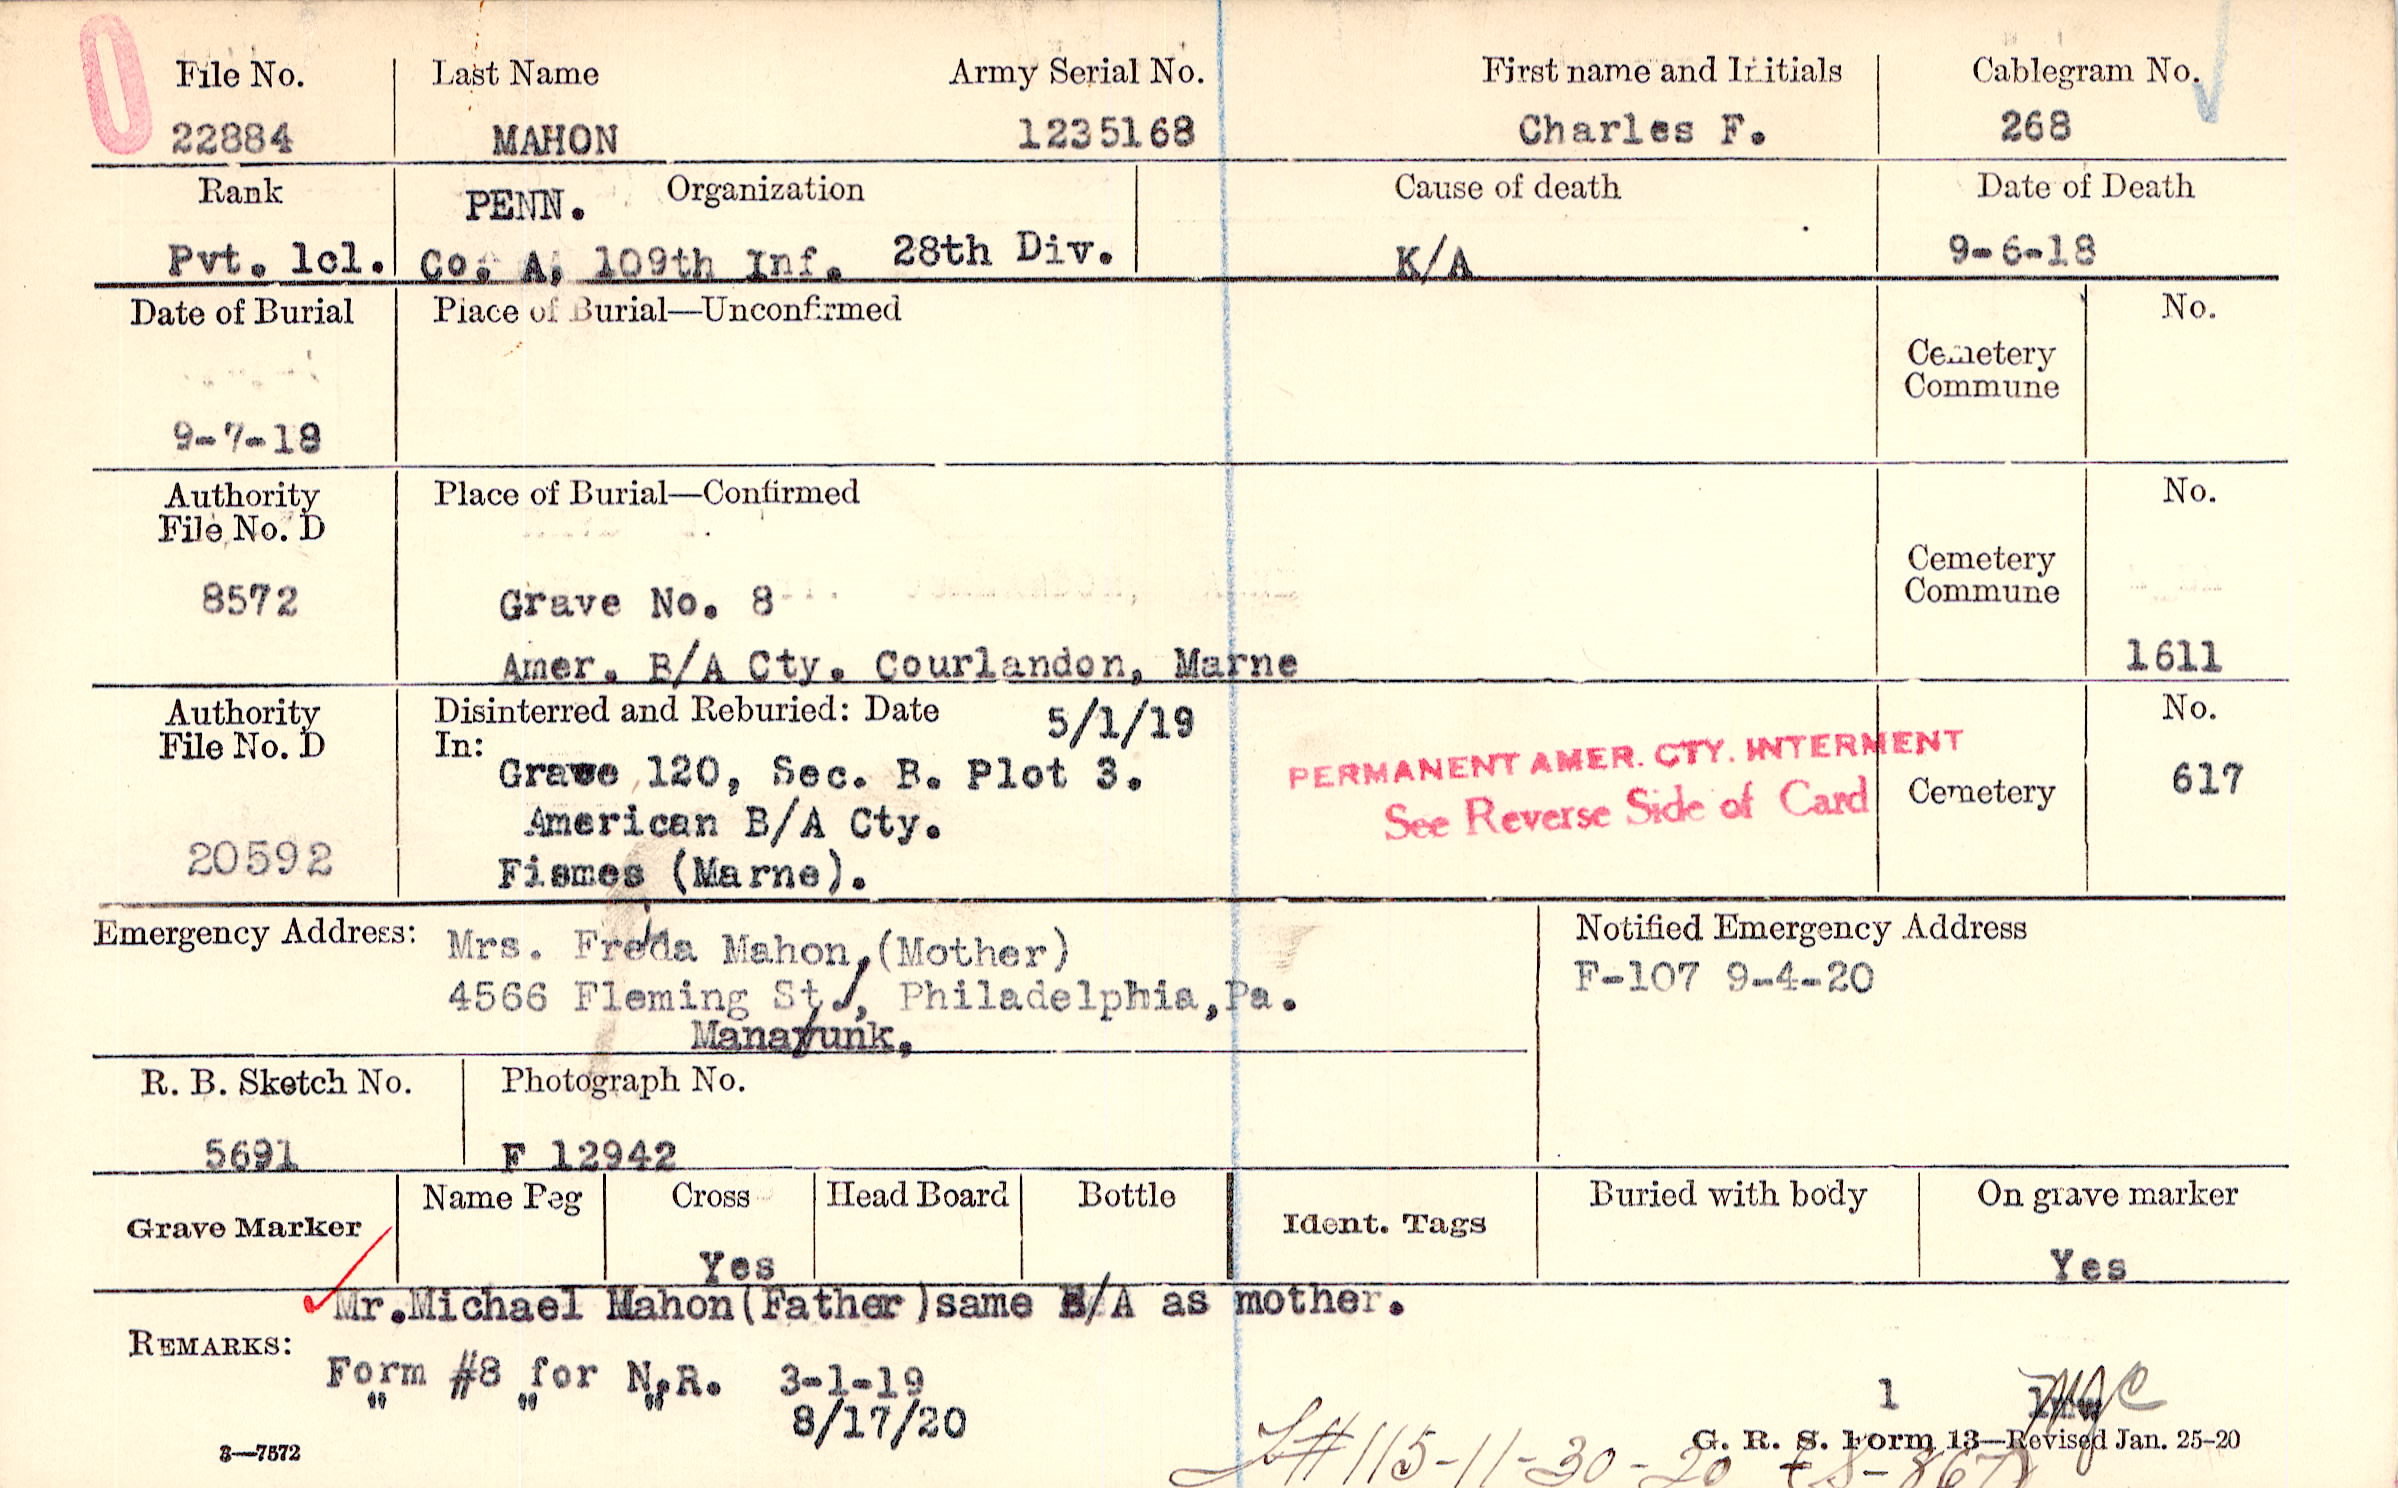 File No. Last Name Army Serial No. First name and Initials Cablegram No.
22884 MAHON 1235168 Charles F. 268
Rank PENN. Organization Cause of death Date of Death
Pvt. 1cl. Co. A, 109th Inf. 28th Div. K/A 9-6-18
Date of Burial Place of Burial—Unconfirmed No.
Cemetery
Commune
9-7-18
Authority Place of Burial—Confirmed No.
File No. D
Cemetery
8572 Grave No. 8 Commune
Amer. B/A Cty. Courlandon, Marne 1611
Authority Disinterred and Reburied: Date 5/1/19 No.
File No. D In:
PERMANENT AMER. CTY. INTERMENT
Grave 120, Sec. B. Plot 3. 617
See Reverse Side of Card Cemetery
American B/A Cty.
20592 Fismes (Marne).
Emergency Address: Mrs. Freda Mahon,(Mother) Notified Emergency Address
4566 Fleming St., Philadelphia,Pa. F-107 9-4-20
Manayunk,
R. B. Sketch No. Photograph No.
5691 F 12942
Grave Marker Name Peg Cross Head Board Bottle Ident. Tags Buried with body On grave marker
Yes Yes
Mr.Michael Mahon(Father)same E/A as mother.
REMARKS:
Form #8 for N.R. 3-1-19
" " " 8/17/20
1
3—7572 G. R. S. Form 13—Revised Jan. 25-20
#115-11-30-20